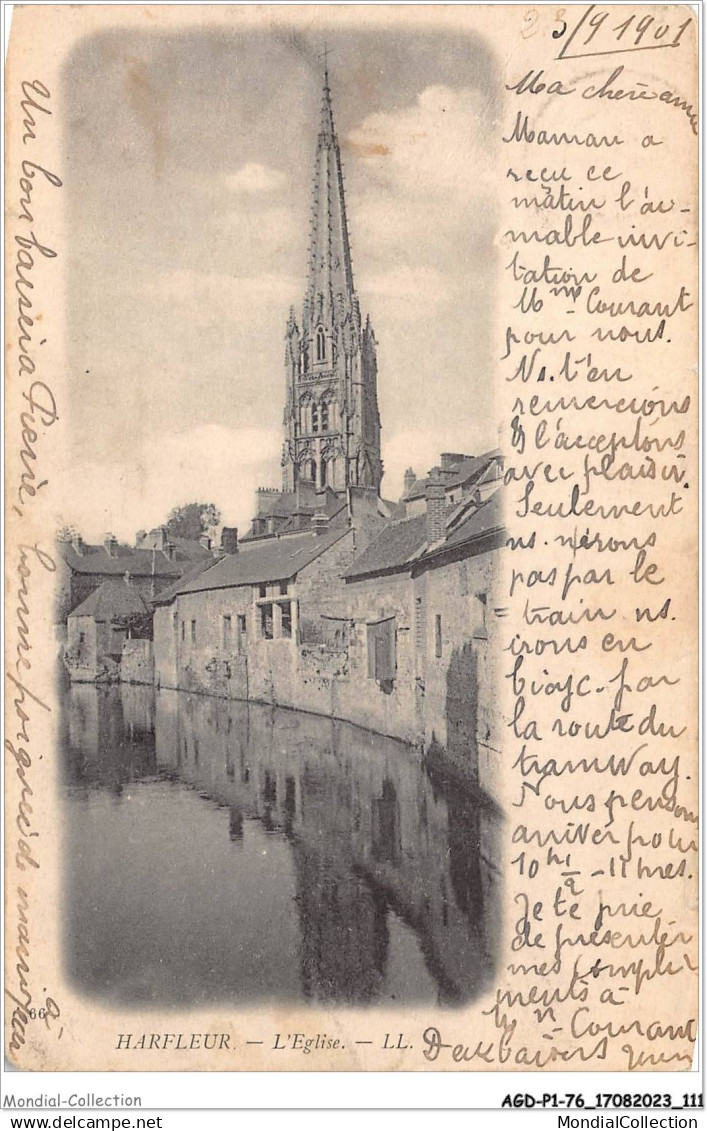 23/9 1901
Ma chère amie
Maman a
reçu ce
matin l'ai-
mable invi-
tation de
Mme Courant
pour nous.
Ns. t'en
remercions
& l'acceptons
avec plaisir.
Seulement
ns. n'irons
pas par le
train ns.
irons en
par
la route du
tramway.
Nous pensons
arriver pour
10h 1/2 - 11 hres.
Je te prie
de présenter
mes compli
ments à
Mme Courant
baisers
Un bon baiser à Pierre,
66
HARFLEUR. — L'Eglise. — LL.
Mondial-Collection
AGD-P1-76_17082023_111
MondialCollection.com